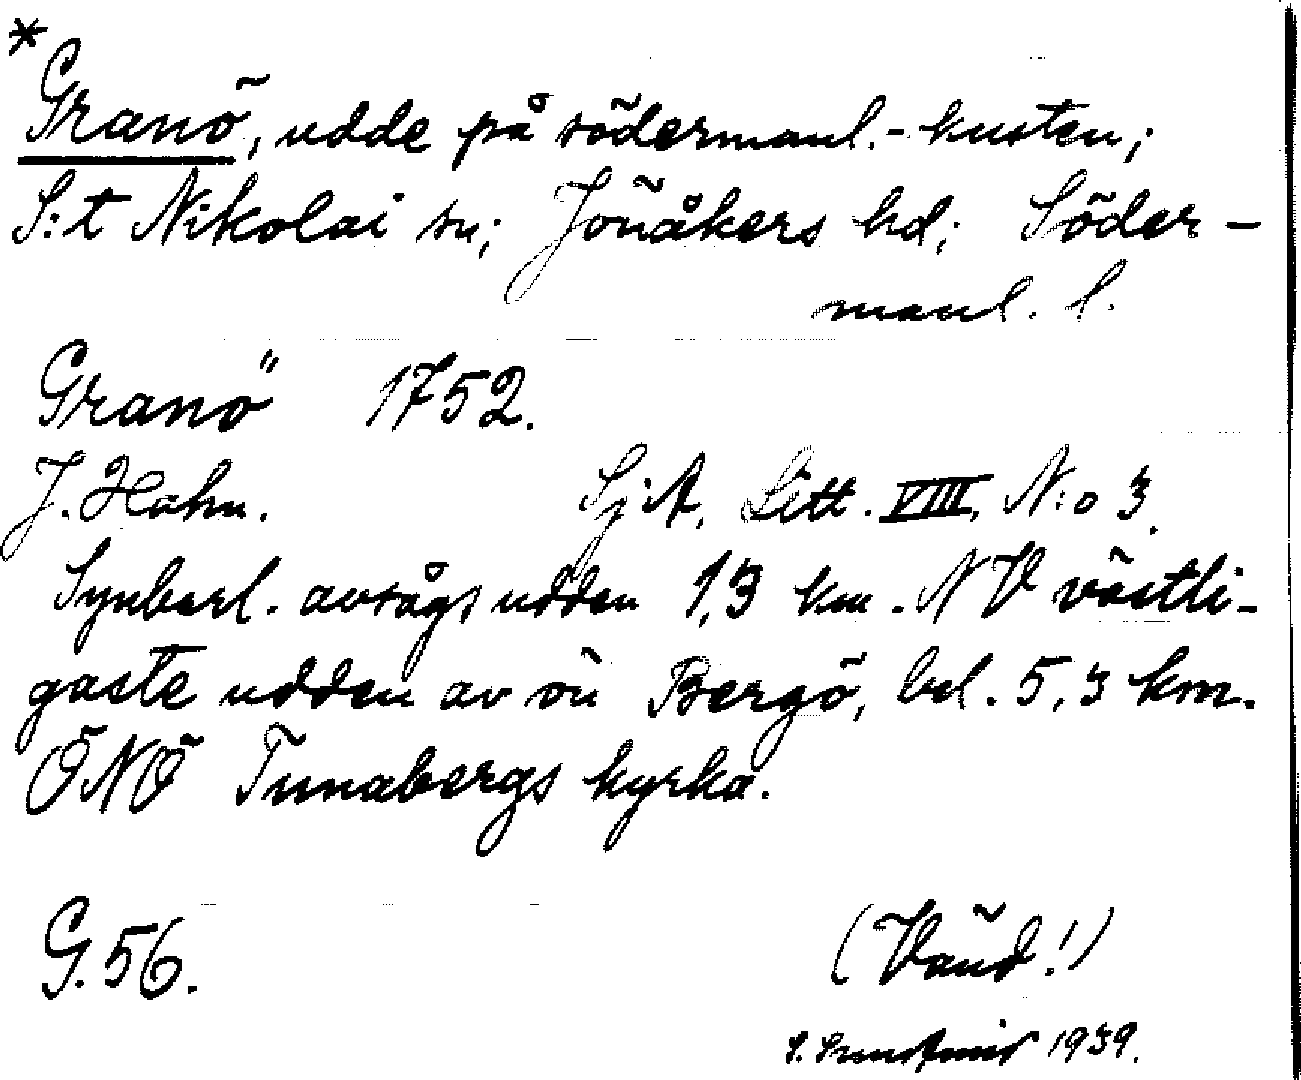 *
Granö, udde på södermanl.-kusten;
S:t Nikolai sn; Jönåkers hd; Söder-
manl. l.
Granö 1752.
J. Hahn. SjA, Litt. VIII, N:o 3.
Synbarl. avsågs udden 1,3 km. NV västli-
gaste udden av ön Bergö, bel. 5,3 km.
ÖNÖ Tunabergs kyrka.
G. 56. (Vänd!)
S. 1939.